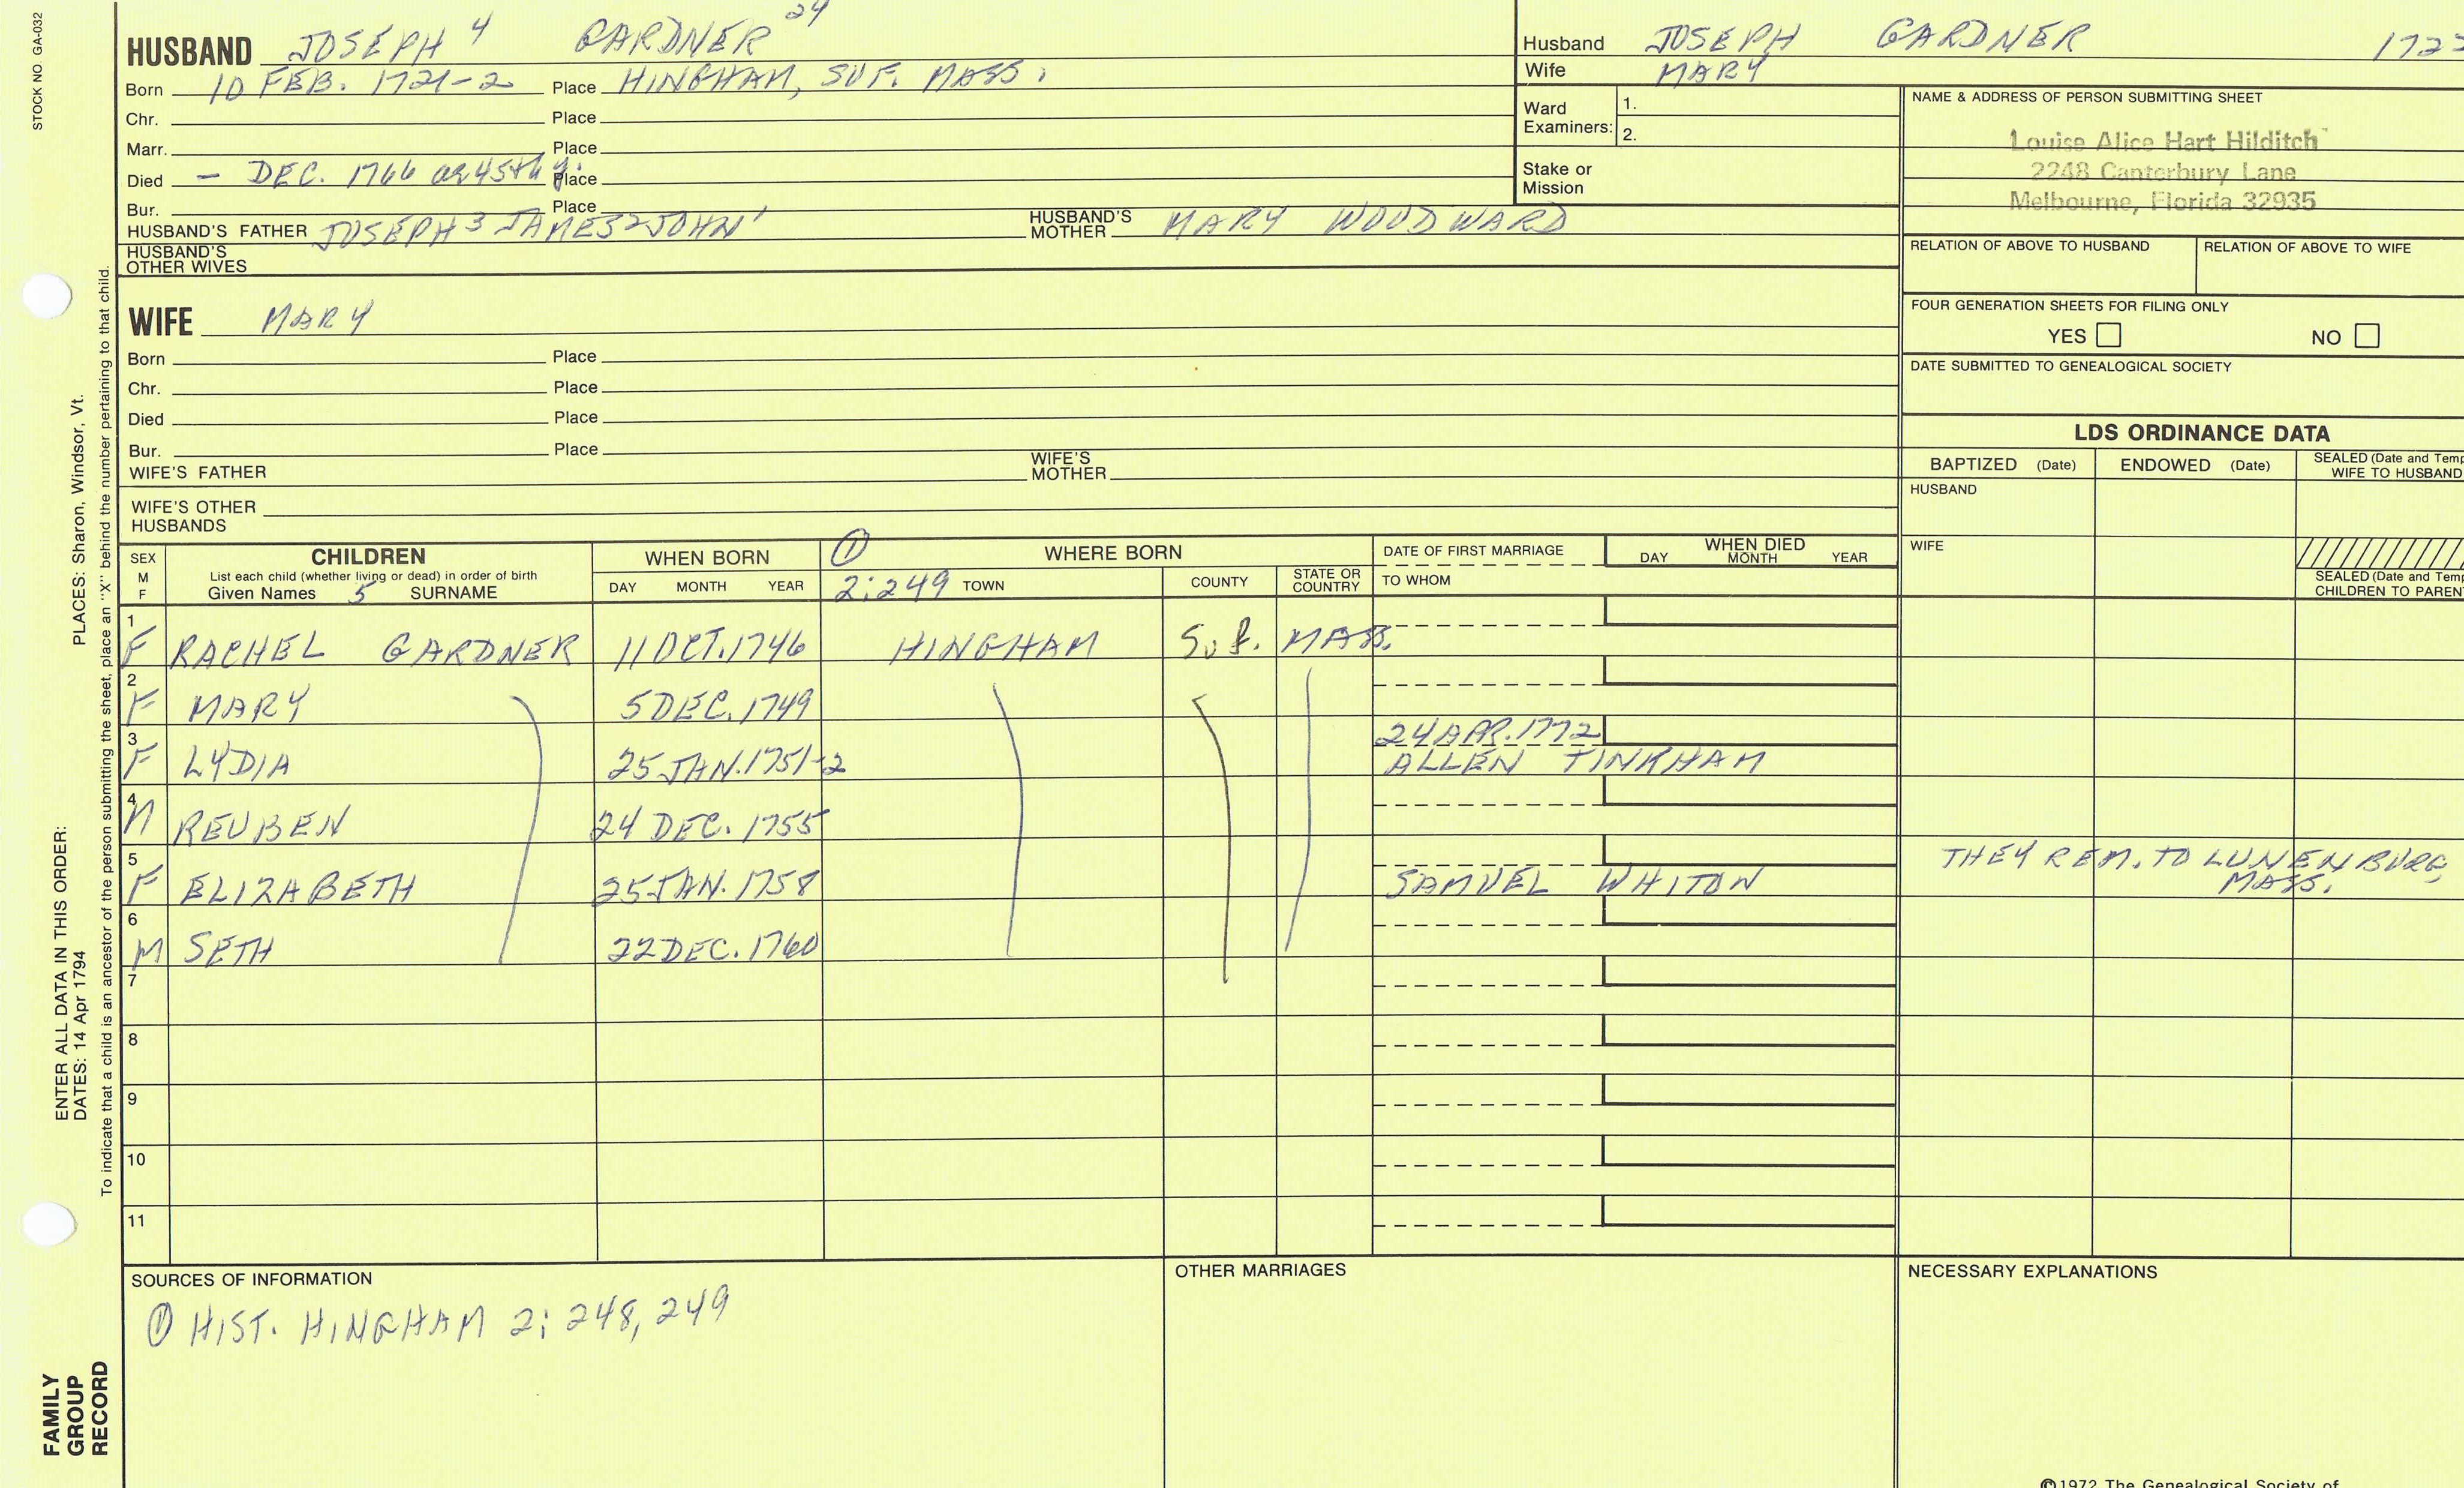 STOCK NO. GA-032
HUSBAND JOSEPH 4 GARDNER 24
Born 10 FEB. 1721-2 Place HINGHAM, SUF. MASS.
Chr. Place
Marr. Place
Died - DEC. 1766 ae 45th y. Place
Bur. Place
HUSBAND'S FATHER JOSEPH 3 JAMES 2 JOHN 1 HUSBAND'S MOTHER MARY WOODWARD
HUSBAND'S OTHER WIVES
WIFE MARY
Born Place
Chr. Place
Died Place
Bur. Place
WIFE'S FATHER WIFE'S MOTHER
WIFE'S OTHER HUSBANDS
Husband JOSEPH GARDNER
Wife MARY
Ward Examiners: 1.
2.
Stake or Mission
NAME & ADDRESS OF PERSON SUBMITTING SHEET
Louise Alice Hart Hilditch
2248 Canterbury Lane
Melbourne, Florida 32935
RELATION OF ABOVE TO HUSBAND RELATION OF ABOVE TO WIFE
FOUR GENERATION SHEETS FOR FILING ONLY
YES NO
DATE SUBMITTED TO GENEALOGICAL SOCIETY
LDS ORDINANCE DATA
BAPTIZED (Date) ENDOWED (Date) SEALED (Date and Temp
WIFE TO HUSBAND
HUSBAND
WIFE
SEALED (Date and Temp
CHILDREN TO PAREN
SEX M F CHILDREN WHEN BORN ① WHERE BORN DATE OF FIRST MARRIAGE WHEN DIED
List each child (whether living or dead) in order of birth
Given Names 5 SURNAME DAY MONTH YEAR 2:249 TOWN COUNTY STATE OR COUNTRY TO WHOM DAY MONTH YEAR
1 F RACHEL GARDNER 11 OCT. 1746 HINGHAM Suf. MASS.
2 F MARY 5 DEC. 1749
3 F LYDIA 25 JAN. 1751-2 24 APR. 1772
ALLEN TINKHAM
4 M REUBEN 24 DEC. 1755
5 F ELIZABETH 25 JAN. 1758 SAMUEL WHITON THEY REM. TO LUNENBURG,
MASS.
6 M SETH 22 DEC. 1760
7
8
9
10
11
SOURCES OF INFORMATION
① HIST. HINGHAM 2: 248, 249
OTHER MARRIAGES
NECESSARY EXPLANATIONS
©1972 The Genealogical Society of
PLACES: Sharon, Windsor, Vt.
To indicate that a child is an ancestor of the person submitting the sheet, place an "X" behind the number pertaining to that child.
ENTER ALL DATA IN THIS ORDER:
DATES: 14 Apr 1794
FAMILY
GROUP
RECORD